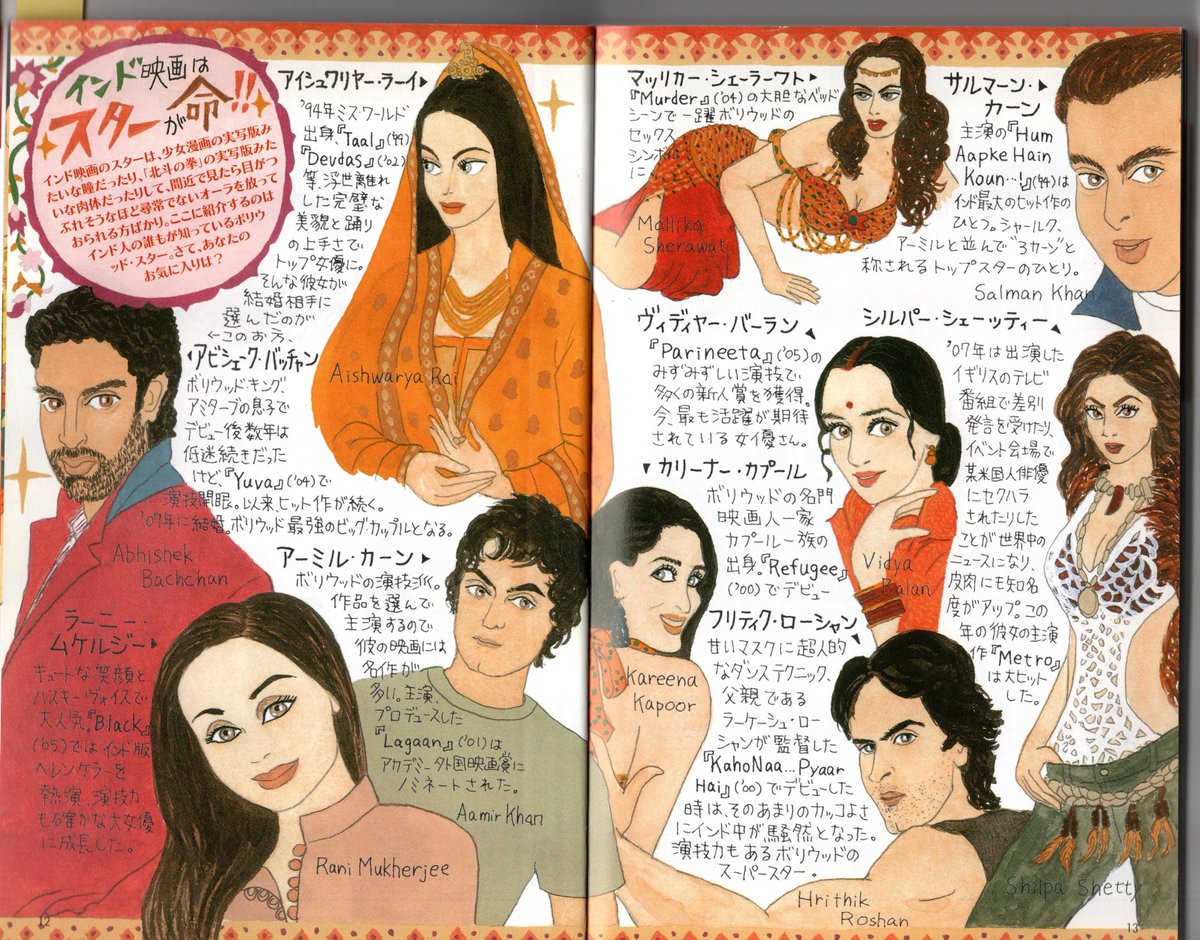 インド映画は
スターが命!!
インド映画のスターは、少女漫画の実写版み
たいな瞳だったり、「北斗の拳」の実写版みた
いな肉体だったりして、間近で見たら目がつ
ぶれそうなほど尋常でないオーラを放って
おられる方ばかり。ここに紹介するのは
インド人の誰もが知っているボリウ
ッド・スター。さて、あなたの
お気に入りは?
アイシュワリヤー・ラーイ▶
'94年ミス・ワールド
出身。『Taal』('99)
『Devdas』('02)
等、浮世離れ
した完璧な
美貌と踊り
の上手さで
トップ女優に。
そんな彼女が
結婚相手に
選んだのが
←このお方、
Aishwarya Rai
◀アビシェーク・バッチャン
ボリウッド・キング、
アミターブの息子で
デビュー後数年は
低迷続きだった
けど、『Yuva』('04)で
演技開眼。以来ヒット作が続く。
'07年に結婚。ボリウッド最強のビッグカップルとなる。
Abhishek
Bachchan
アーミル・カーン▶
ボリウッドの演技派。
作品を選んで
主演するので
彼の映画には
名作が
多い。主演、
プロデュースした
『Lagaan』('01)は
アカデミー外国映画賞に
ノミネートされた。
Aamir Khan
ラーニー・
ムケルジー▶
キュートな笑顔と
ハスキーヴォイスで
大人気。『Black』
('05)ではインド版
ヘレンケラーを
熱演、演技力
もる確かな大女優
に成長した。
Rani Mukherjee
12
マッリカー・シェーラーワト▶
『Murder』('04)の大胆なベッド
シーンで一躍ボリウッドの
セックス
シンボルに
Mallika
Sherawat
サルマーン・
カーン▶
主演の『Hum
Aapke Hain
Koun…!』('94)は
インド最大のヒット作の
ひとつ。シャールク、
アーミルと並んで"3カーン"と
称されるトップスターのひとり。
Salman Khan
ヴィディヤー・バーラン
『Parineeta』('05)の
みずみずしい演技で
多くの新人賞を獲得。
今、最も活躍が期待
されている女優さん。
Vidya
Balan
シルパー・シェーッティー
'07年は出演した
イギリスのテレビ
番組で差別
発言を受けたり、
イベント会場で
某米国人俳優
にセクハラ
されたりした
ことが世界中の
ニュースになり、
皮肉にも知名
度がアップ。この
年の彼女の主演
作『Metro』
は大ヒット
した。
Shilpa Shetty
▼カリーナー・カプール
ボリウッドの名門
映画人一家
カプール一族の
出身。『Refugee』
('00)でデビュー
Kareena
Kapoor
フリティク・ローシャン
甘いマスクに超人的
なダンステクニック、
父親である
ラーケーシュ・ロー
シャンが監督した
『KahoNaa...Pyaar
Hai』('00)でデビューした
時は、そのあまりのカッコよさ
にインド中が騒然となった。
演技力もあるボリウッドの
スーパースター。
Hrithik
Roshan
13